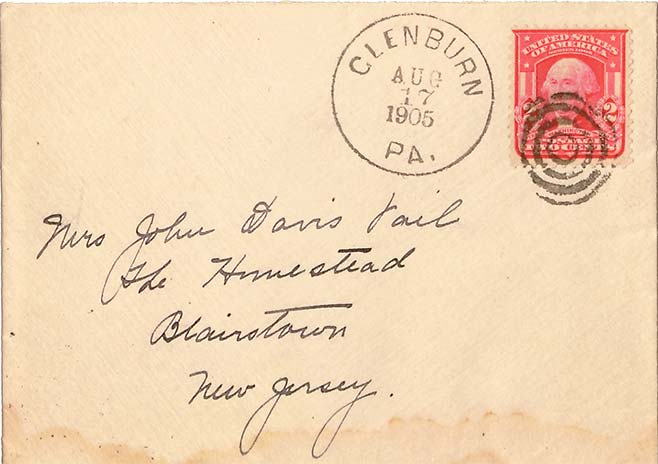 GLENBURN
AUG
17
1905
PA.
UNITED STATES
OF AMERICA
2 2
TWO CENTS
Mrs John Davis Vail
The Homestead
Blairstown
New Jersey.